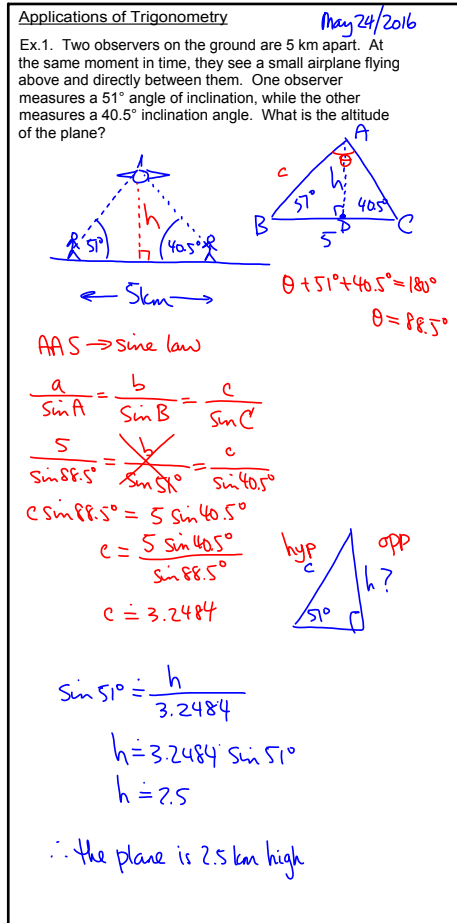 Applications of Trigonometry
May 24/2016
Ex.1. Two observers on the ground are 5 km apart. At
the same moment in time, they see a small airplane flying
above and directly between them. One observer
measures a 51° angle of inclination, while the other
measures a 40.5° inclination angle. What is the altitude
of the plane?
h
51°
40.5°
5km
A
θ
c
h
51°
40.5°
B
D
C
5
θ + 51° + 40.5° = 180°
θ = 88.5°
AAS → sine law
a/sin A = b/sin B = c/sin C
5/sin 88.5° = b/sin 51° = c/sin 40.5°
c sin 88.5° = 5 sin 40.5°
c = 5 sin 40.5°/sin 88.5°
c ≐ 3.2484
hyp
opp
c
h?
51°
sin 51° ≐ h/3.2484
h ≐ 3.2484 sin 51°
h ≐ 2.5
∴ the plane is 2.5 km high